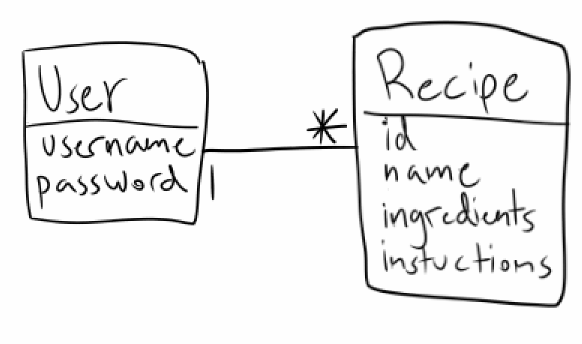 User
username
password
1
*
Recipe
id
name
ingredients
instuctions